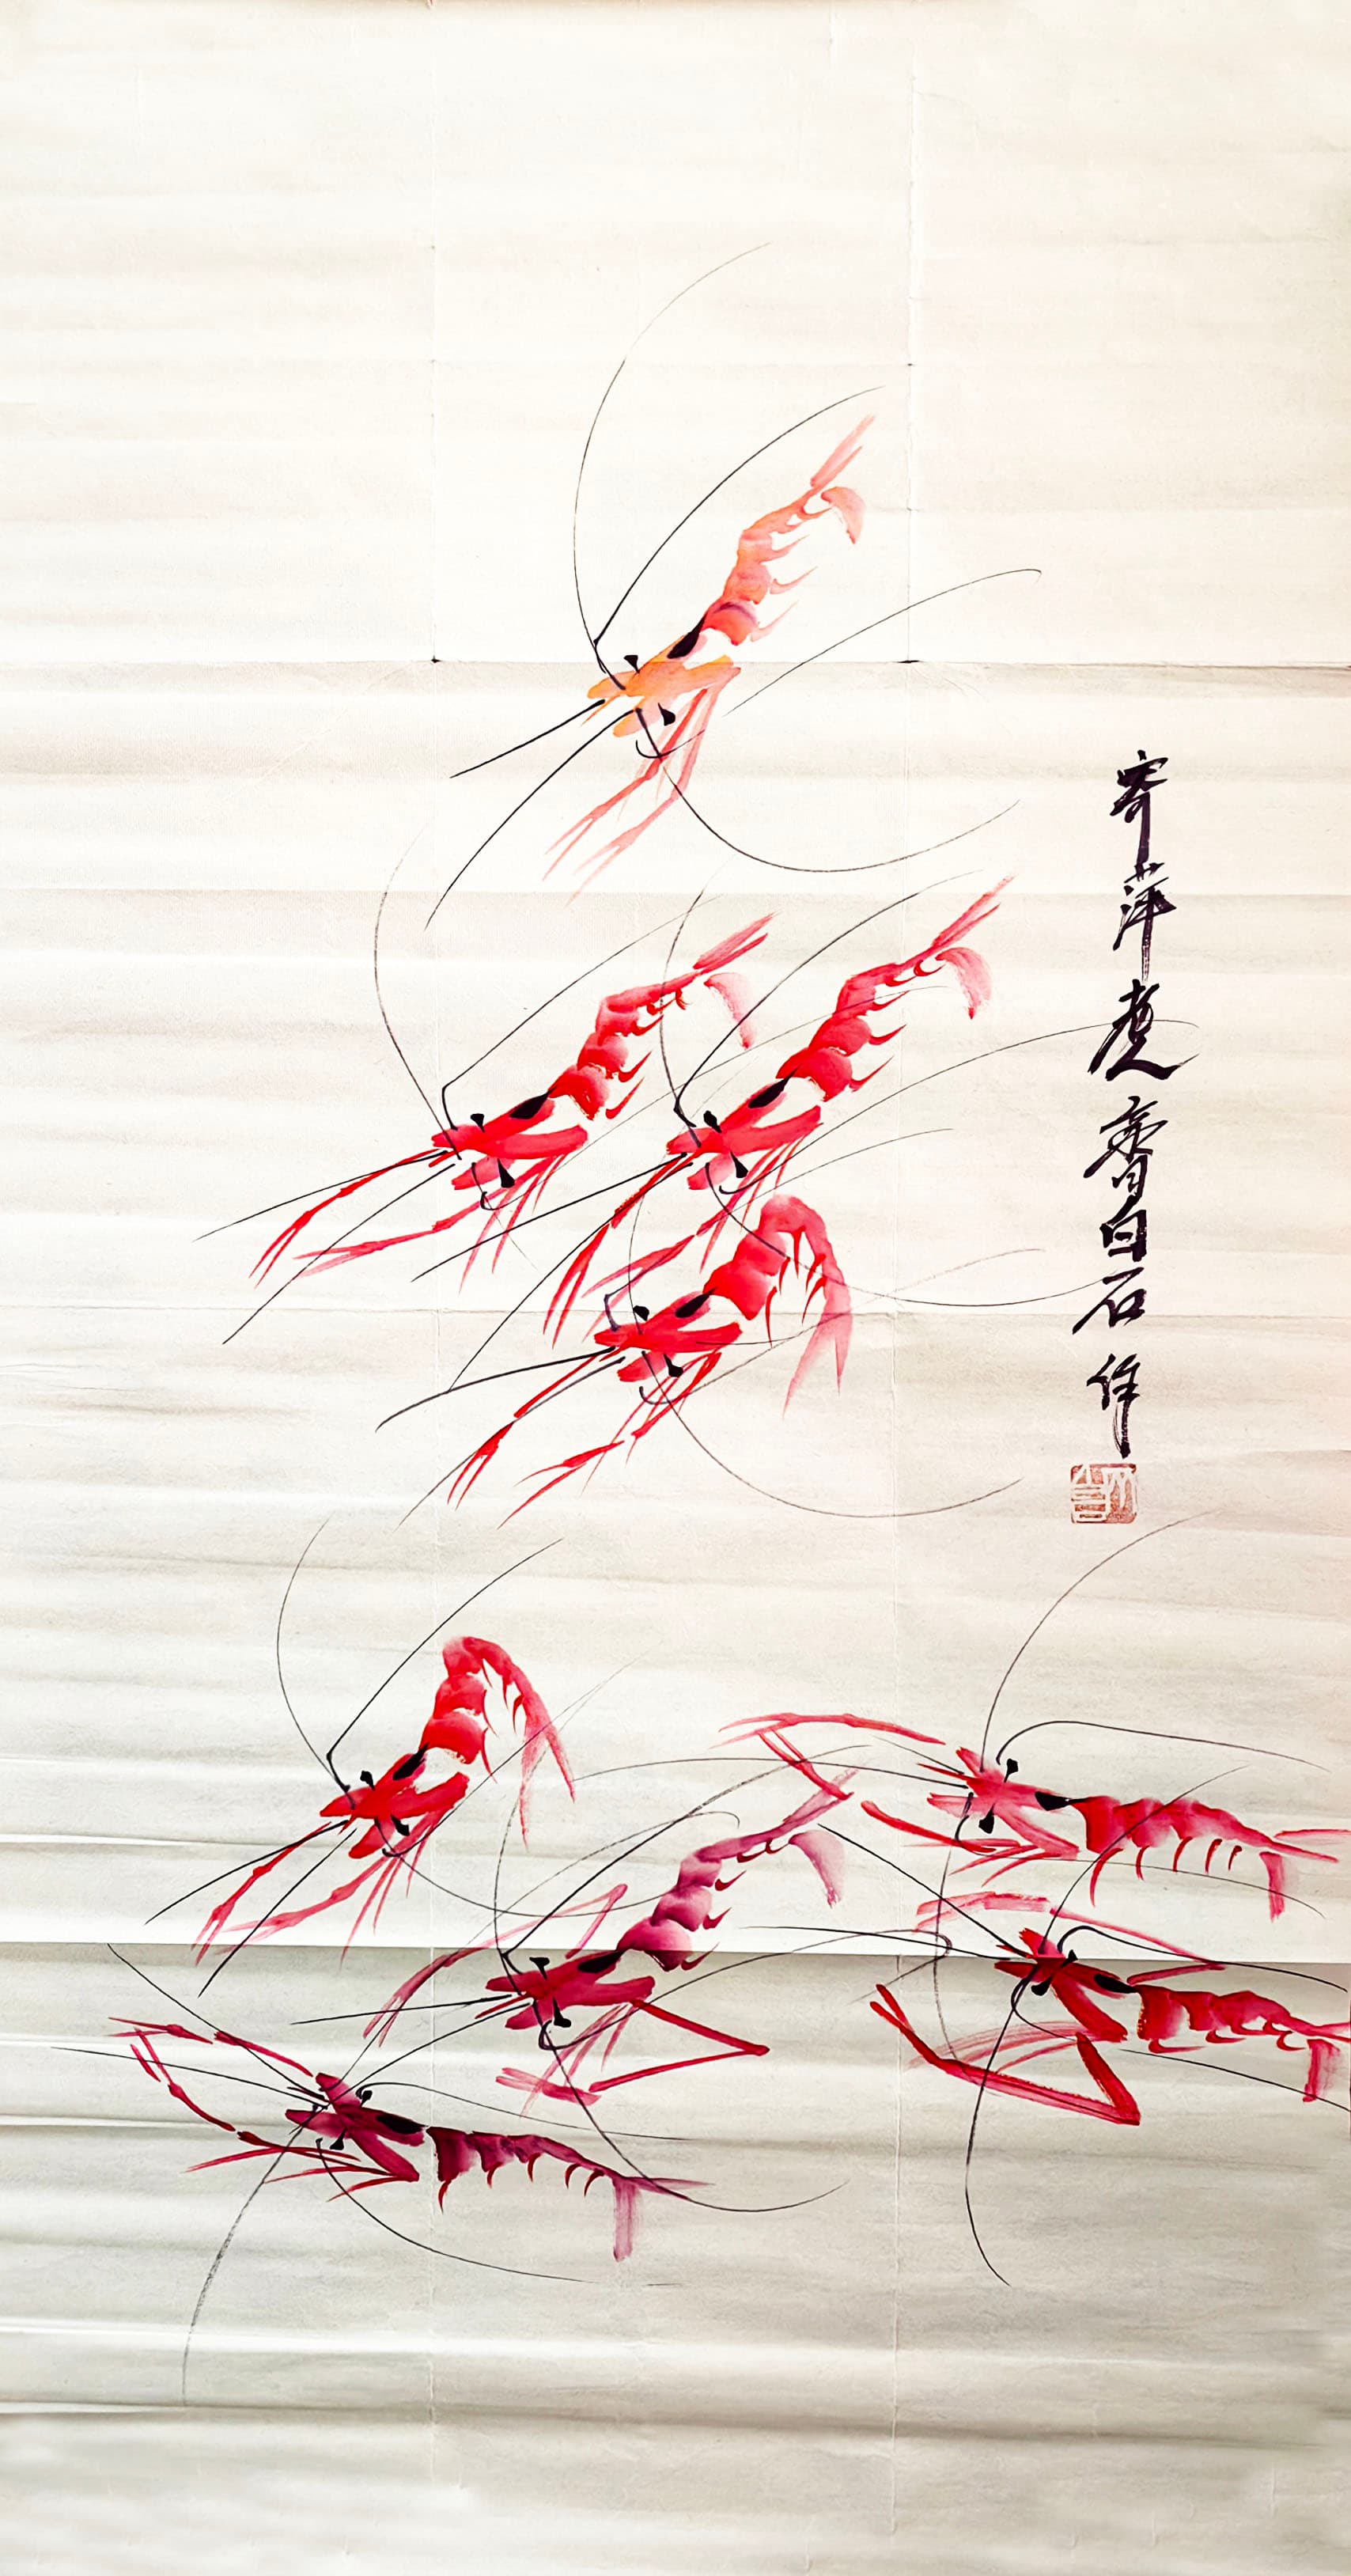 寄萍老人齊白石作